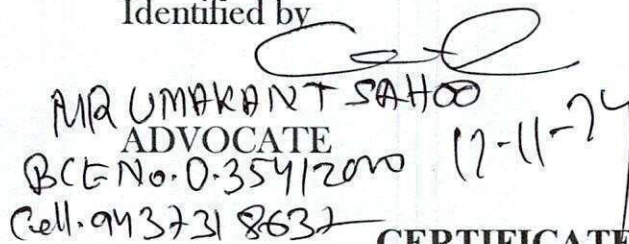 Identified by
MR UMAKANT SAHOO
ADVOCATE 12-11-24
BCE No. O-354/2000
Cell. 9437318637
CERTIFICATE